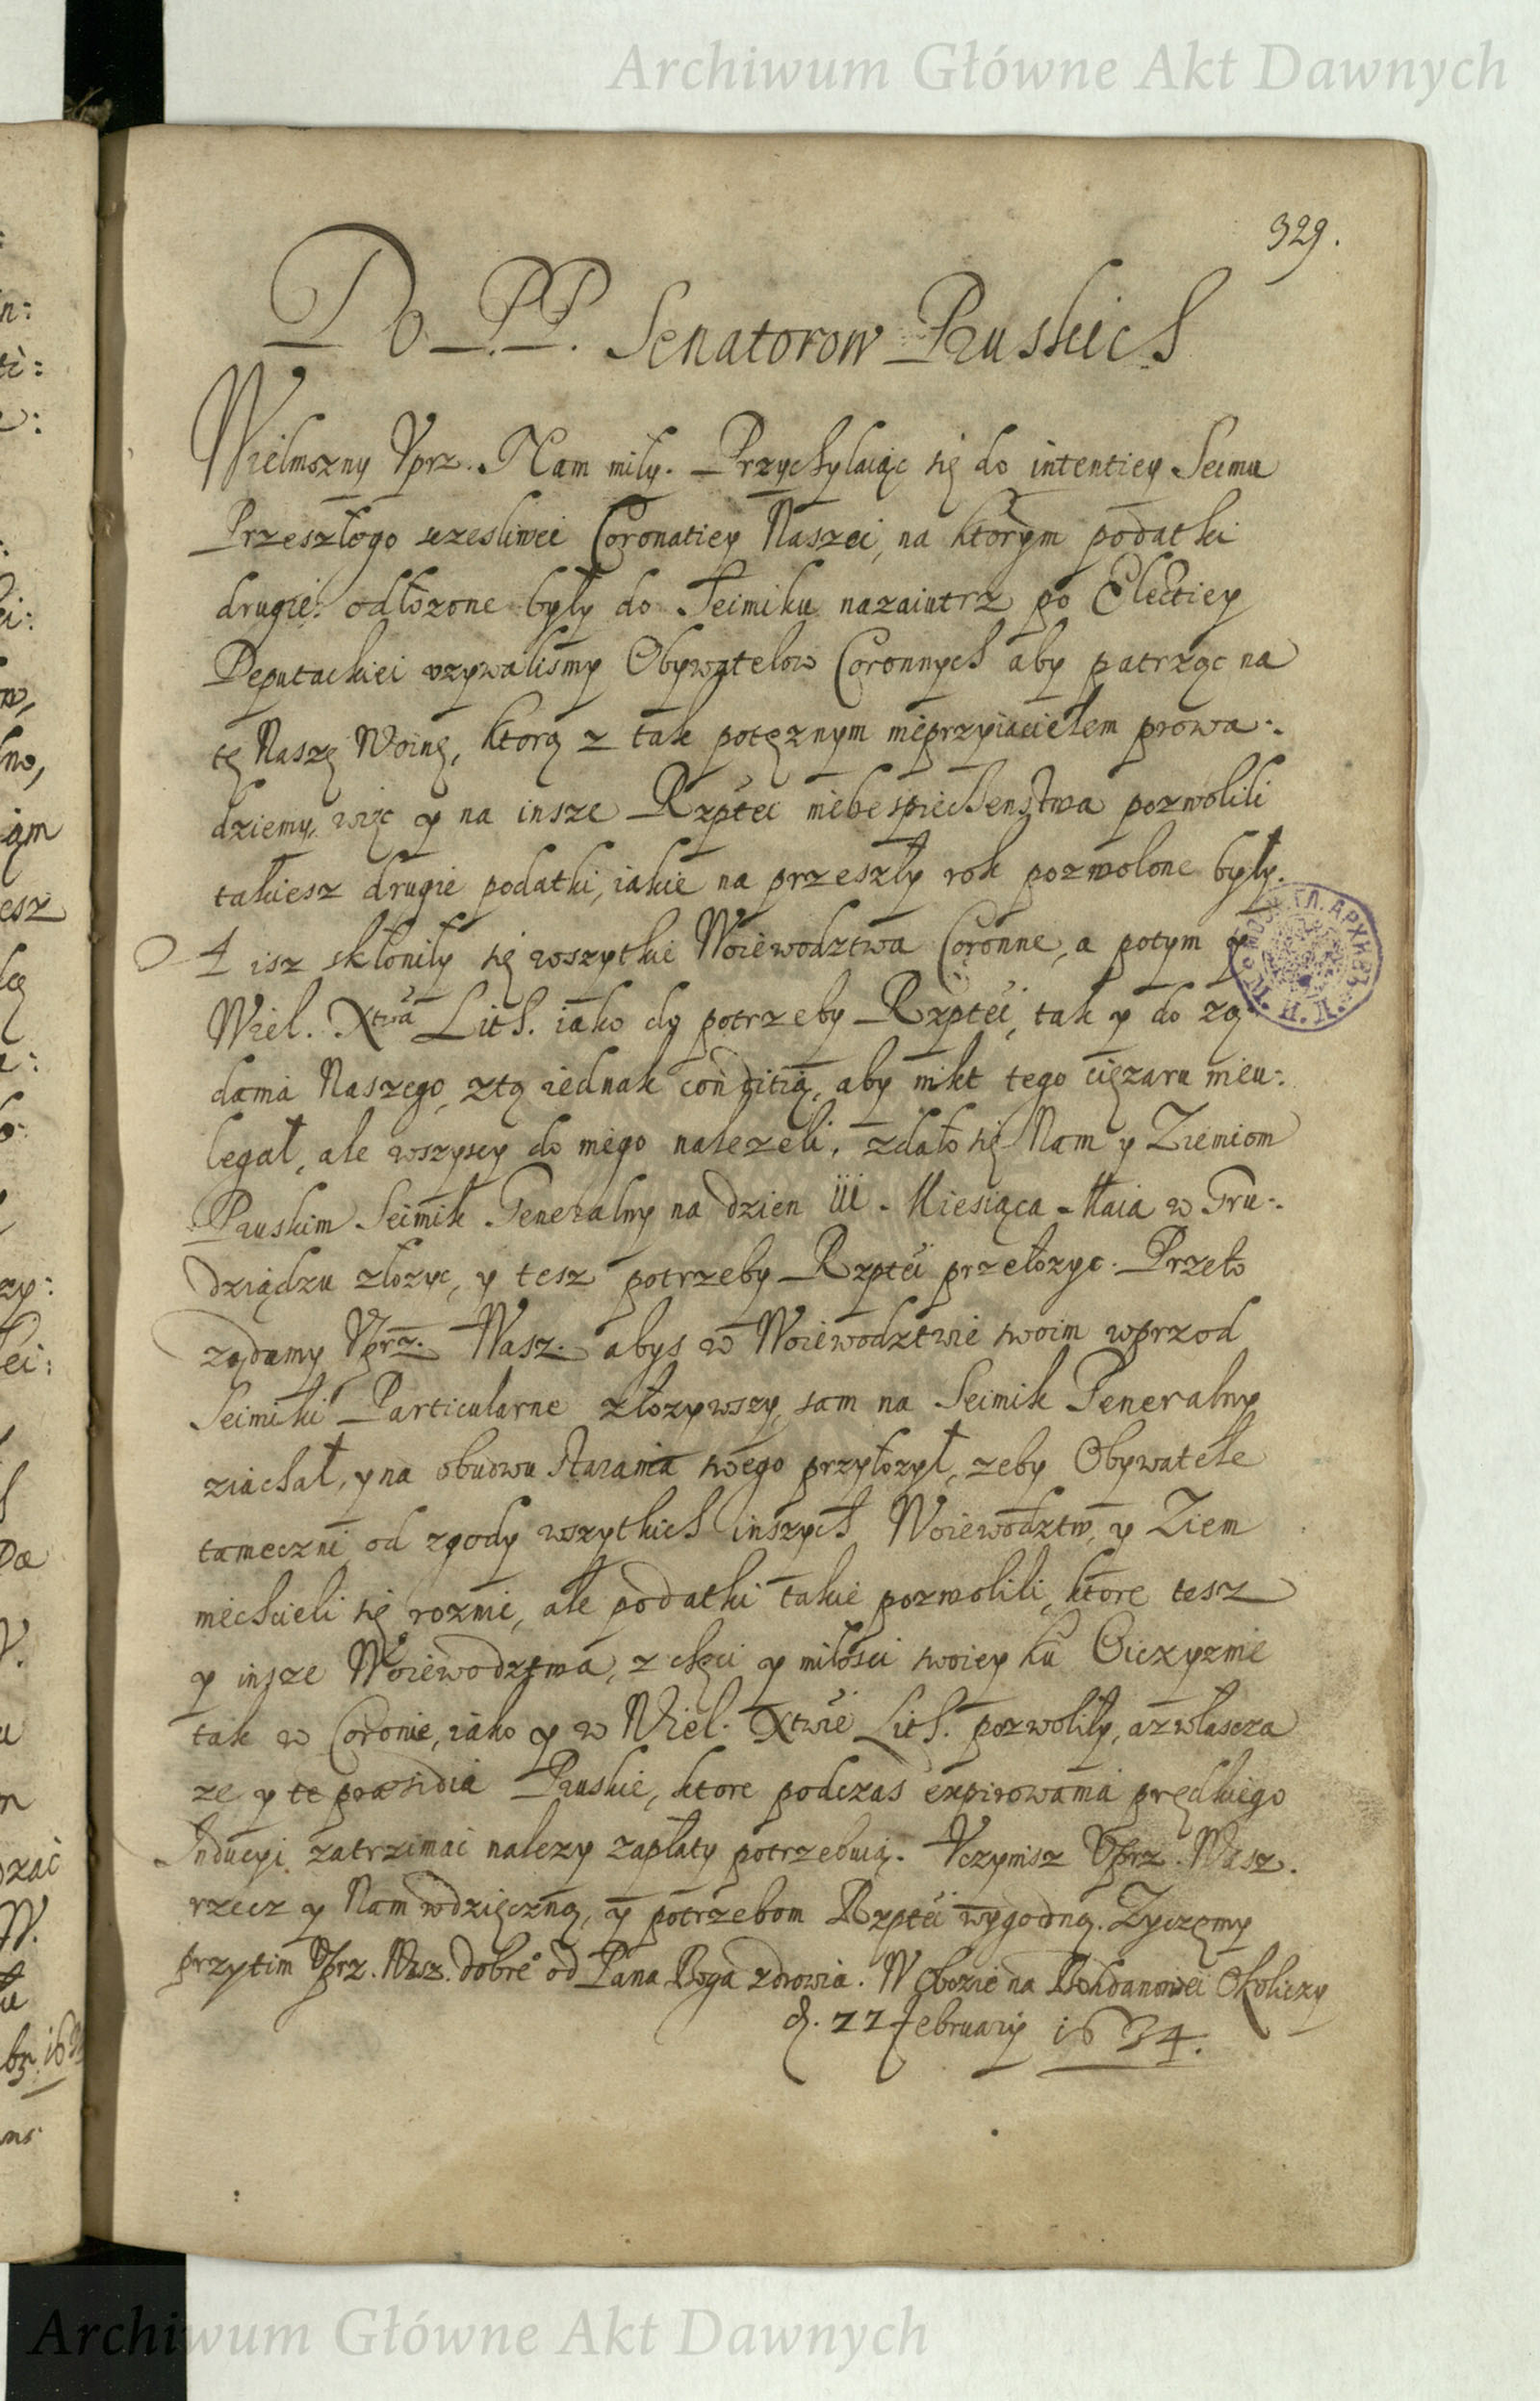 Archiwum Główne Akt Dawnych
329.
Do P.P. Senatorow Pruskich
Wielmozny Vprz. Nam miły. Przychylaiąc się do intentiey Seimu
Przeszłego szczesliwei Coronatiey Naszei, na ktorym podatki
drugie odłozone były do Seimiku nazaiutrz po Electiey
Deputackiei vzywalismy Obywatelow Coronnych aby patrząc na
tę Naszę Woinę, ktorą z tak potęznym nieprzyiacielem prowa:
dziemy, więc y na insze Rzptei niebespieczenstwa pozwolili
takiesz drugie podatki, iakie na przeszły rok pozwolone były.
A isz skłoniły się wszytkie Woiewodztwa Coronne, a potym y
Wiel. Xtwa Lith. iako do potrzeby Rzptei, tak y do zą
dania Naszego, ztą iednak conditią, aby nikt tego cięzaru nieu:
legał, ale wszyscy do niego nalezeli, zdało się Nam y Ziemiom
Pruskim Seimik Generalny na dzien iii Miesiąca Maia w Gru:
dziądzu złozyc, y tesz potrzeby Rzptei przełozyc. Przeto
ządamy Vprz. Wasz. abys w Woiewodztwie swoim wprzod
Seimiki Particularne złozywszy, sam na Seimik Generalny
ziachał, y na obudwu starania swego przyłozył, zeby Obywatele
tameczni od zgody wszytkich inszych Woiewodztw, y Ziem
niechcieli się roznic, ale podatki takie pozwolili, ktore tesz
y insze Woiewodztwa, z chęci y miłosci swoiey ku Oiczyznie
tak w Coronie, iako y w Wiel. Xtwie Lith. pozwoliły, azwłascza
ze y te præsidia Pruskie, ktore podczas expirowania prędkiego
Inducyi zatrzimać nalezy zapłaty potrzebuią. Vczynisz Vprz. Wasz.
rzecz y Nam wdzięczną, y potrzebom Rzptei wygodną. Zyczemy
przytim Vprz. Wasz. dobre od Pana Boga zdrowia. W Obozie na Bohdanowei Okoliczy
d. 22 February 1634.
Archiwum Główne Akt Dawnych